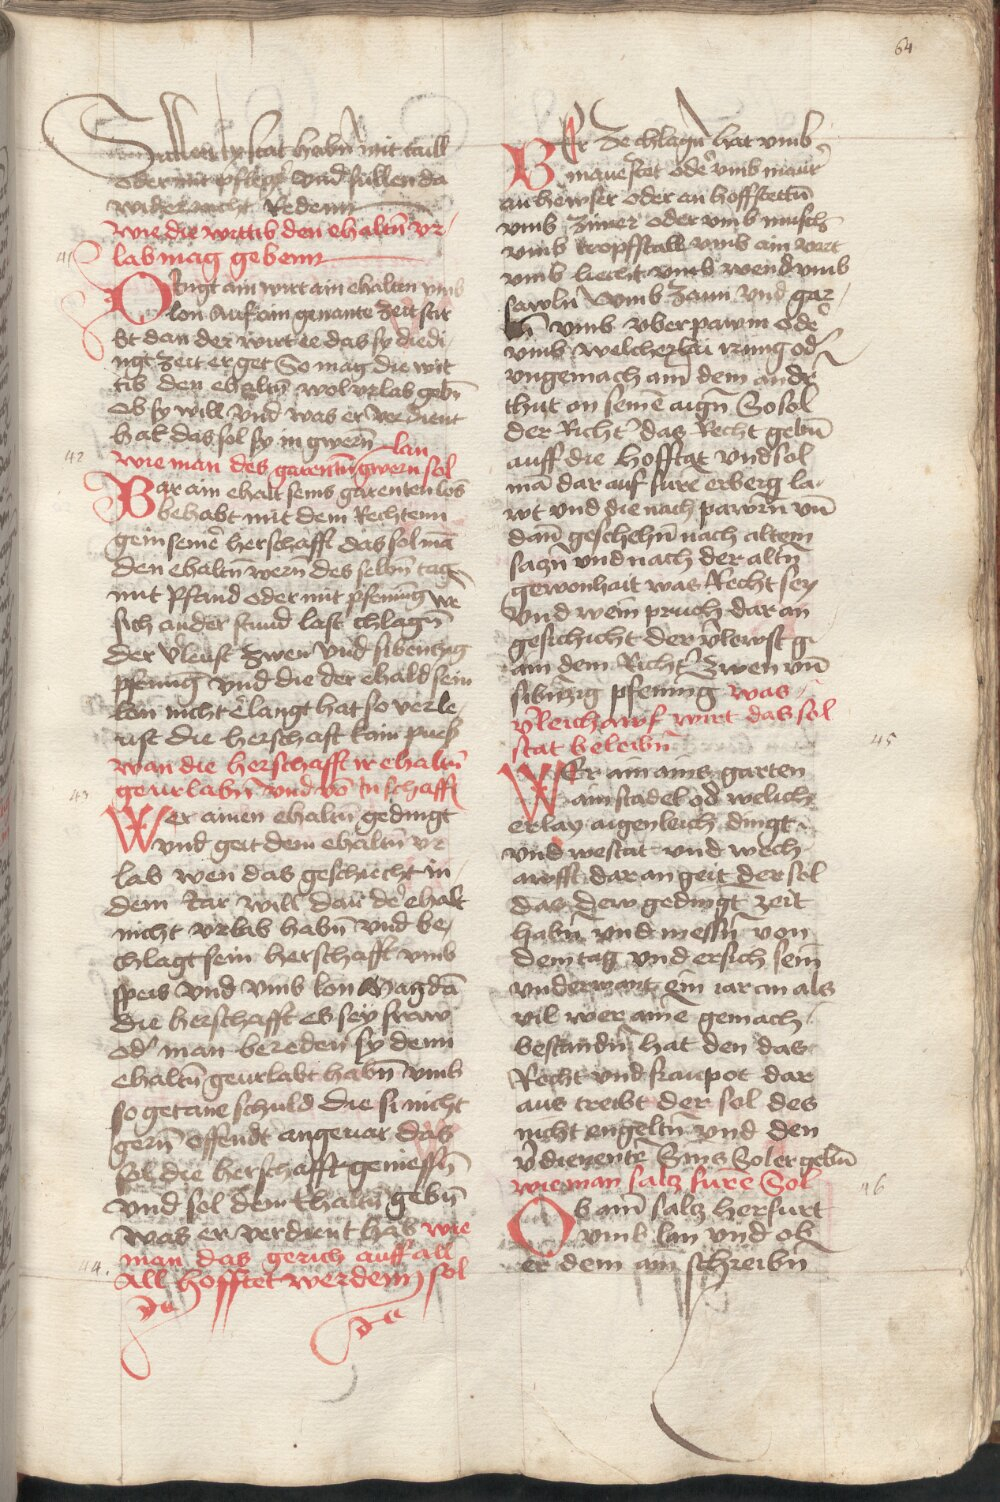 64
habn mit taill
oder mit pfleg und sullen da
wider nicht Redenn
wie die wittib den ehaltn ur
41
lab mag gebenn
Dingt ain wirt ain ehalten umb
lon Auf ain genante Zeit stir
bt dan der wirt ee das sy die di
ngt zeit er get So mag die wit
tib den ehaltn wol urlab gebn
Ob sy will und was er verdient
hat das sol sy in gwern
lan
42
wie man des garenten gwern sol
War ain ehalt seins garenten los
behabt mit dem Rechtenn
gein seinē herschafft das sol mā
den ehaltn wern des selbn tags
mit Pfand oder mit pfening wē
sich ander stund last chlagn
der vleust zwen und sibentzig
pfening und die der ehald sein
lon nicht elangt hat so verle
ust die herschaft kain pueß
wan die herschafft ir ehaltn
geurlabn und vō in schafft
43
Wer ainen ehaltn gedingt
und geit dem ehaltn ur
lab wen das geschiecht in
dem Iar will dan de ehalt
nicht urlab habn und be
chlagt sein herschafft umb
speis und umb lon Mag dā
die herschafft es sey fraw
od man bereden sy denn
ehaltn geurlabt habn umb
so getane schuld die si nicht
gern offendt an geuar das
sol die herschafft geniessn
und sol dem Ehaltn gebn
was er verdient hat wie
man das gerich auff all
44.
All hofftet werdenn sol
Wer ze chlagn hat umb
mauestet oder umb maur
an hewser oder an hoffstettn
umb Zimer oder umb mисch
umb tropfstall umb ain wert
umb liecht umb wend umb
sewln umb Zaun und gar
tn umb uberpawm ode
umb welcherlai irung od
ungemach ain dem andr
thut an seinē aign So sol
der Richt das Recht gebn
auff die hofftat und sol
mā dar auf fure erberg la
wt und die nach pawrn un
dan geschehn nach altem
sagn und nach der altn
gewonhait was Recht sey
Und wem pruch dar an
geschicht der vlewst g
am dem Richt Zwen un
sibnzig pfening was
vleich awf wirt das sol
stat beleibn
45
WEr ain ains garten
ain stadel od welich
erlay aigenleich dingt
und westat und wech
awfft dar an geit der sol
das dew gedingt zeit
habn und messn von
dem tag und er sich sein
underwant Ein iar an als
vil wer aine gemach
bestandn hat den das
Recht und fraupot dar
aus treibt der sol des
nicht engeltn und den
vdienente Zins Sol er gebn
wie man saltz furē Sol
46
Ob ain saltz her furt
umb lan und ob
er dem am schreibn